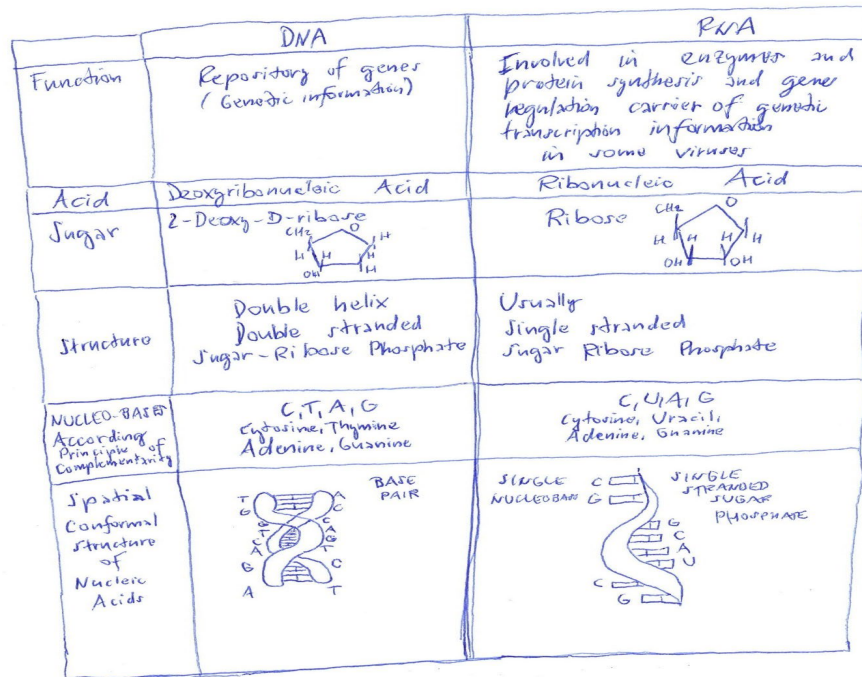 DNA
RNA
Function
Repository of genes
(Genetic information)
Involved in enzymes and
protein synthesis and genes
regulation carrier of genetic
transcription information
in some viruses
Acid
Deoxyribonucleic Acid
Ribonucleic Acid
Sugar
2-Deoxy-D-ribose
CH2 O
H H H H
OH H
Ribose
CH2 O
H H H H
OH OH
Structure
Double helix
Double stranded
Sugar-Ribose Phosphate
Usually
Single stranded
Sugar Ribose Phosphate
NUCLEO-BASES
According
Principle of
Complementarity
C, T, A, G
Cytosine, Thymine
Adenine, Guanine
C, U, A, G
Cytosine, Uracil,
Adenine, Guanine
Spatial
Conformal
Structure
of
Nucleic
Acids
BASE
PAIR
T A
G C
G C
T A
C G
A T
G C
A T
SINGLE
NUCLEOBASE
C
G
SINGLE
STRANDED
SUGAR
PHOSPHATE
G
C
A
U
C
G